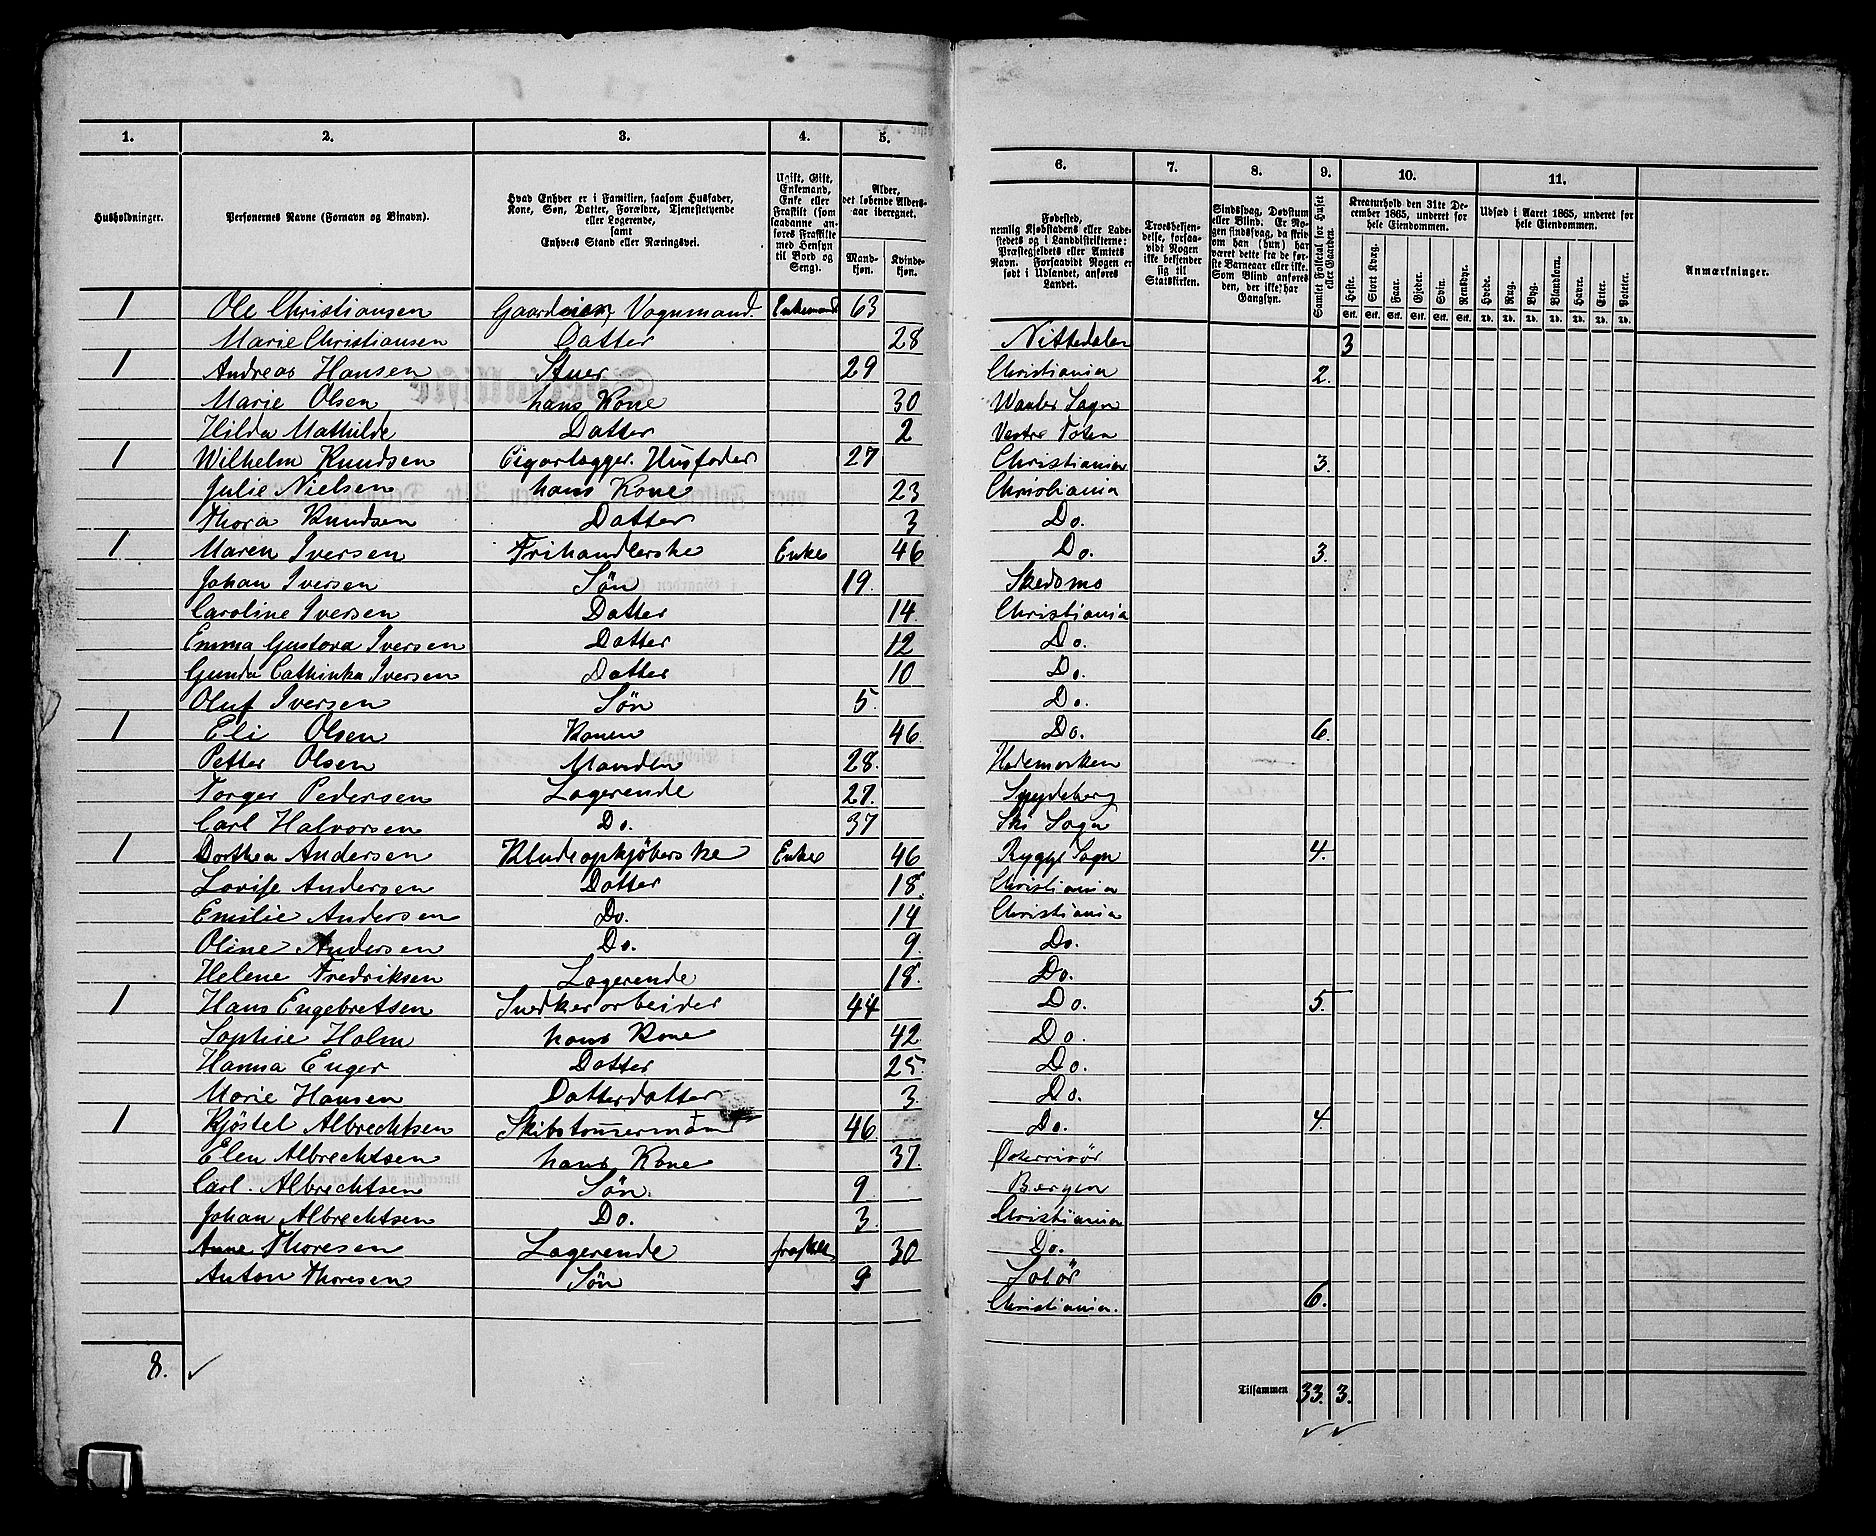 1. 2. 3. 4. 5.
Husholdninger.
Personernes Navne (Fornavn og Binavn).
Hvad Enhver er i Familien, saasom Husfader, Kone, Søn, Datter, Forældre, Tjenestetyende eller Logerende, samt Enhvers Stand eller Næringsvei.
Ugift, Gift, Enkemand, Enke eller Fraskilt (som saadanne anføres Fraskilte med Hensyn til Bord og Seng).
Alder, det løbende Alders-aar iberegnet.
Mandkjøn. Kvindekjøn.
1 Ole Christiansen Gaardeier, Vognmand. Enkemand 63
Marie Christiansen Datter 28
1 Andreas Hansen Stuer 29
Marie Olsen hans Kone 30
Hilda Mathilde Datter 2
1 Wilhelm Knudsen Cigarlægger. Husfader 27
Julie Nielsen hans Kone 23
Thora Knudsen Datter 3
1 Maren Iversen Frihandlerske Enke 46
Johan Iversen Søn 19.
Caroline Iversen Datter 14.
Emma Gustava Iversen Datter 12
Gunda Cathinka Iversen Datter 10
Oluf Iversen Søn 5.
1 Eli Olsen Konen 46.
Petter Olsen Manden 28.
Torger Pedersen Logerende 27.
Carl Halvorsen Do. 37
1 Dorthea Andersen Kludeopkjøberske Enke 46
Lovise Andersen Datter 18.
Emilie Andersen Do. 14
Oline Andersen Do. 9.
Helene Fredriksen Logerende 18.
1 Hans Engebretsen Snedkerarbeider 44
Sophie Holm hans Kone 42
Hanna Enger Datter 25.
Marie Hansen Datterdatter 3.
1 Kjøstel Albrechtsen Skibstømermand 46
Elen Albrechtsen hans Kone 37.
Carl. Albrechtsen Søn. 9
Johan Albrechtsen Do. 3.
Anne Thoresen Logerende fraskilt 30
Anton Thoresen Søn 9
8.
6. 7. 8. 9. 10. 11.
Fødested, nemlig Kjøbstadens eller Ladestedets og i Landdistrikterne: Præstegjeldets eller Amtets Navn. Forsaavidt Nogen er født i Udlandet, anføres Landet.
Troesbekjendelse, forsaavidt Nogen ikke bekjender sig til Statskirken.
Sindssvag, Døvstum eller Blind. Er Nogen sindssvag, da skrives om han (hun) har været dette fra de første Barneaar eller ikke. Som Blind anføres den, der ikke har Gangsyn.
Samlet Folketal for Huset eller Gaarden.
Kreaturhold den 31te December 1865, underet for hele Eiendommen.
Heste. Stort Kvæg. Faar. Gjeder. Svin. Rensdyr.
Stk. Stk. Stk. Stk. Stk. Stk.
Udsæd i Aaret 1865, underet for hele Eiendommen.
Hvede. Rug. Byg. Blandkorn. Havre. Erter. Poteter.
Td. Td. Td. Td. Td. Td. Td.
Anmærkninger.
Nittedalen 3
Christiania 2.
Waaler Sogn
Vestre Toten
Christiania 3.
Christiania
Do.
Do. 3.
Skedsmo
Christiania
Do.
Do.
Do.
Do. 6.
Hedemarken
Spydeberg
Ski Sogn
Rygge Sogn 4.
Christiania
Christiania
Do.
Do.
Do. 5.
Do.
Do.
Do.
Do. 4.
Østerrisör
Bergen
Christiania
Do.
Solör
Christiania. 6.
Tilsammen 33. 3.